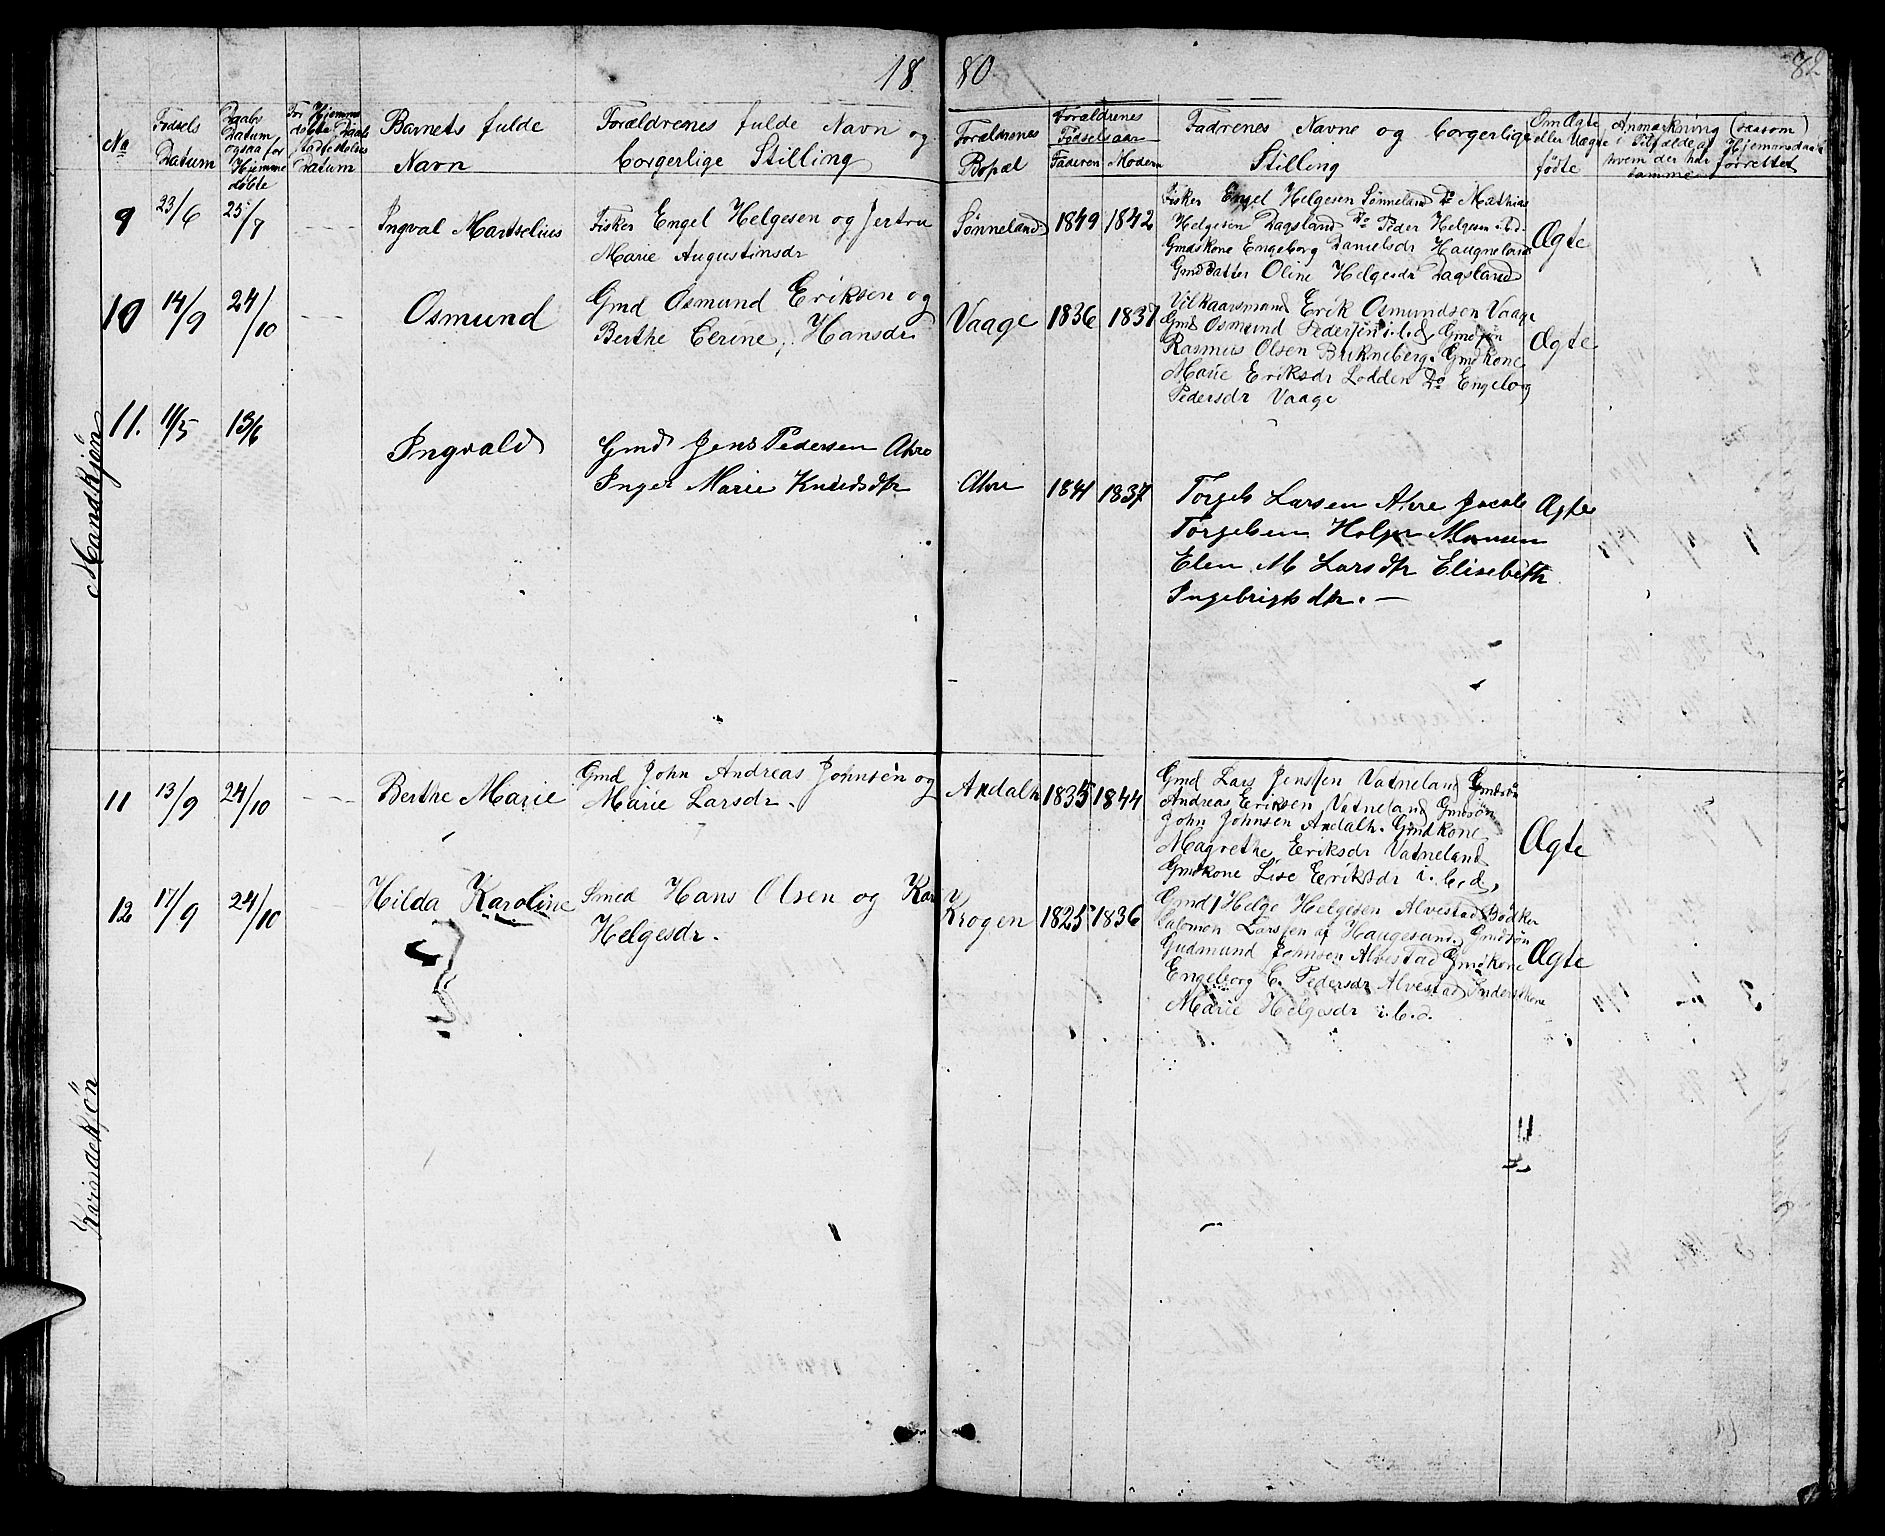 18 80
82
No
Fødsels Datum
Daabs Datum, ogsaa for Hjemmedøbte
For Hjemmedøbte Daab Stadfestelses Datum
Barnets fulde Navn
Forældrenes fulde Navn og borgerlige Stilling
Forældrenes Bopæl
Forældrenes Fødselsaar
Faderen Modern
Fadrenes Navne og borgerlige Stilling
Om Ægte eller Uægte fødte
Anmærkning (saasom i Tilfælde af Hjemmedaab hvem der har forrettet samme
Mandkjøn
9 23/6 25/7 Ingval Martselius
Fisker Engel Helgesen og Jertru
Marie Augustinsdr
Sønneland 1849 1842
Fisker Engel Helgesen Sønneland Do Mathias
Helgesen Dagsland Do Peder Helgesen i.b.d.
Gmdskone Engeborg Danielsdr Haugneland
Gmd Datter Oline Helgesdr Dagsland
Ægte
10 14/9 24/10 Osmund
Gmd Osmund Eriksen og
Berthe Cerine, Hansdr
Vaage 1836 1837
Vilkaarsmand Erik Osmundsen Vaage
Gmd Osmund Pedersen i.b.d. Gmdsøn
Rasmus Olsen Bukneberg. Gmdkone
Marie Eriksdr Lodden Do Engeborg
Pedersdr Vaage
Ægte
11. 11/5 13/6 Ingvald
Gmd Jens Pedersen Ahre
Inger Marie Knudsdtr
Ahre 1841 1837
Torgels Larsen Ahre Jacob
Torgelsen Holger Monsen
Elen M Larsdtr Elisebeth
Ingebrigtsdtr. —
Ægte
Kvindekjøn
11 13/9 24/10 Berthe Marie
Gmd John Andreas Johnsen og
Marie Larsdr.
Andalh 1835 1844
Gmd Lars Jenssen Vatneland Gmdsøn
Andreas Eriksen Vatneland Gmdsøn
John Johnsen Andalh. Gmdkone
Magrethe Eeriksdr Vatneland
Gmdkone Lise Eeriksdr i.b.d,
Ægte
12 17/9 24/10 Hilda Karoline
Smed Hans Olsen og Kari
Helgesdr.
Krogen 1825 1836
Gmd Helge Helgesen Alvestad Bødker
Salomon Larssen af Haugesund. Gmdsøn
Gudmund Johnsen Alvestad Gmdkone
Engeborg C. Pedersdr Alvestad Inderstkone
Marie Helgesdr i.b.d.
Ægte